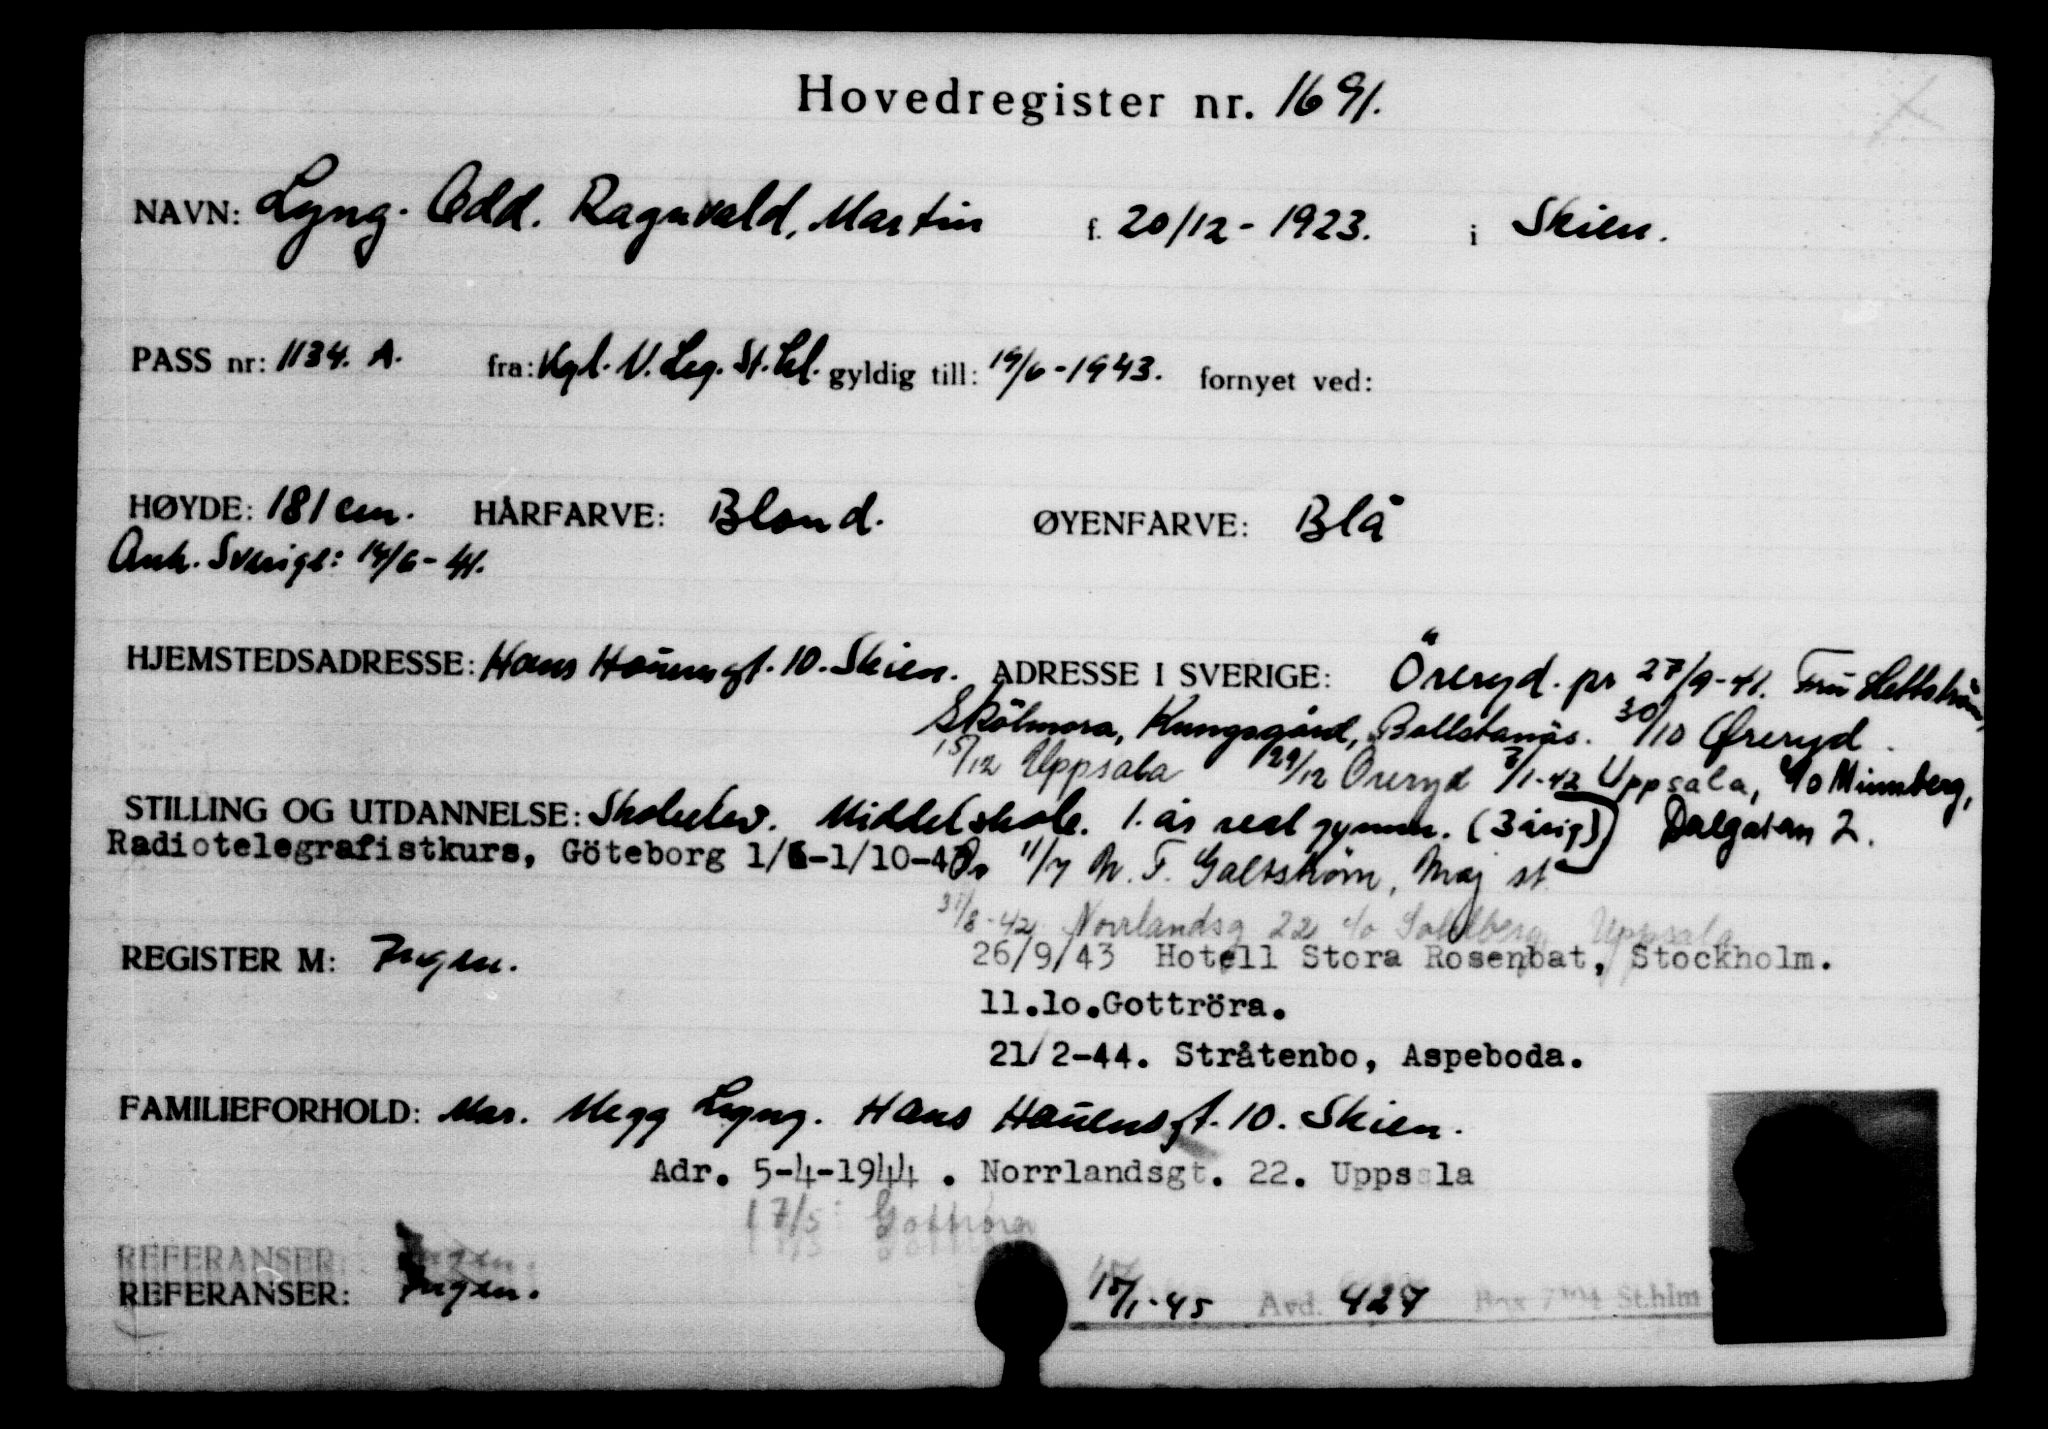 Hovedregister nr. 1691.
NAVN: Lyng. Odd. Ragnvald, Martin f. 20/12-1923. i Skien.
PASS nr: 1134. A. fra: Kgl. N. Leg. St. gyldig till: 19/6-1943. fornyet ved:
HØYDE: 181 cm. HÅRFARVE: Blond. ØYENFARVE: Blå
Ank. Sverige: 14/6-41.
HJEMSTEDSADRESSE: Hans Houensgt. 10. Skien. ADRESSE I SVERIGE: Öreryd. pr 27/9-41. Fru
Kungsgård, Bollstanäs. 30/10 Øreryd.
15/12 Uppsala 29/12 Öreryd 7/1-42 Uppsala, c/o Minnberg,
STILLING OG UTDANNELSE: Skoleelev. Middelskole. 1. års real gymn. (3 årig) Dalgatan 2.
Radiotelegrafistkurs, Göteborg 1/6-1/10-43 11/7 N. T. Galtström, Maj st
31/8-42 Norrlandsg 22 c/o Uppsala
REGISTER M: Ingen.
26/9/43 Hotell Stora Rosenbat, Stockholm.
11.10.Gottröra.
21/2-44. Stråtenbo, Aspeboda.
FAMILIEFORHOLD: Mor. Megg Lyng. Hans Houensgt. 10. Skien.
Adr. 5-4-1944 . Norrlandsgt. 22. Uppsala
17/5 Gottröra
REFERANSER: Ingen.
REFERANSER: Ingen.
15/1-45 Avd. 427 Box St.hlm